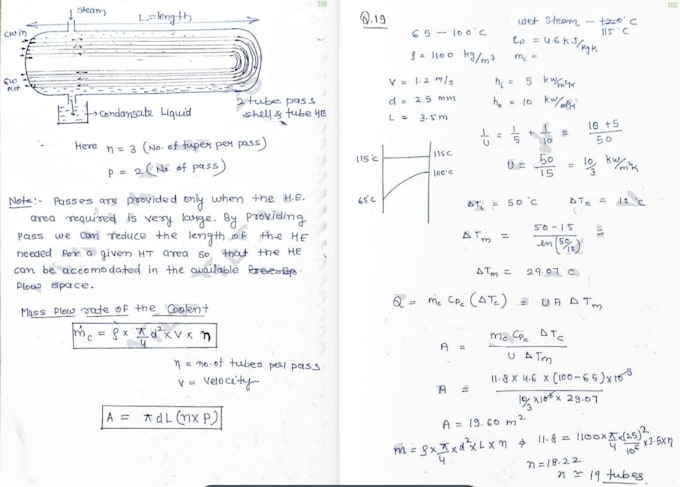 101
steam
L = length
CW in
CW out
condensate Liquid
2 tube pass
shell & tube HE
Here n = 3 (No. of tuper per pass)
P = 2 (No. of pass)
Note:- Passes are provided only when the H.E.
area required is very large. By Providing
Pass we can reduce the length of the HE
needed for a given HT area so that the HE
can be accomodated in the available
flow space.
Mass flow rate of the Coolent
ṁc = ρ × π/4 d² × V × n
n = no. of tubes per pass
V = Velocity
A = πdL (n×P)
102
Q.19
65 - 100°C
wet steam - 120°C
115°C
ρ = 1100 kg/m³
Cp = 4.6 kJ/kgk
mc =
V = 1.2 m/s
hi = 5 kW/m²k
d = 25 mm
ho = 10 kW/m²k
L = 3.5m
1/U = 1/5 + 1/10 = 10+5/50
115°C
115C
100°C
65°C
U = 50/15 = 10/3 kW/m²k
ΔTi = 50°C
ΔTe = 15°C
ΔTm = 50-15/ln(50/15) =
ΔTm = 29.07 C
Q = mc Cpc (ΔTc) = U A ΔTm
A = mc Cpc ΔTc/U ΔTm
A = 11.8 × 4.6 × (100-65)×10³/10/3 ×10³ × 29.07
A = 19.60 m²
m = ρ×π/4×d²×L×n ⇒ 11.8 = 1100×π/4×(25)²/10⁶×3.5×n
n = 18.22
n ≃ 19 tubes.